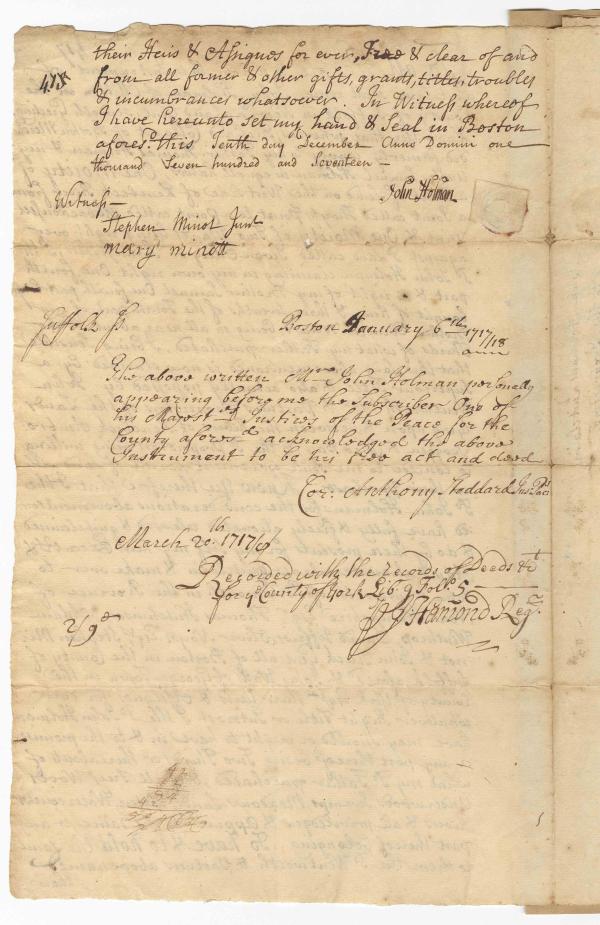 their Heirs & Assignes for ever, Free & clear of and
473
from all former & other gifts, grants, titles, troubles
& incumbrances whatsoever. In Witness whereof
I have hereunto set my hand & Seal in Boston
aforesd. this Tenth day December Anno Domini one
thousand Seven hundred and Seventeen —
John Holman
Witness —
Stephen Minot Junr
mary minott
Suffolk Ss.
Boston January 6th 1717/18
The above written John Holman personally
appearing before me the Subscriber One of
his Majesties Justices of the Peace for the
County aforesd acknowledged the above
Instrument to be his free act and deed
Cor: Anthony Stoddard Jus Pacs
March 20th 1717/8
Recorded with the records of Deeds &ct
for ye County of York Lib. 9 Folo. 5
Hamond Regr.
2/9d